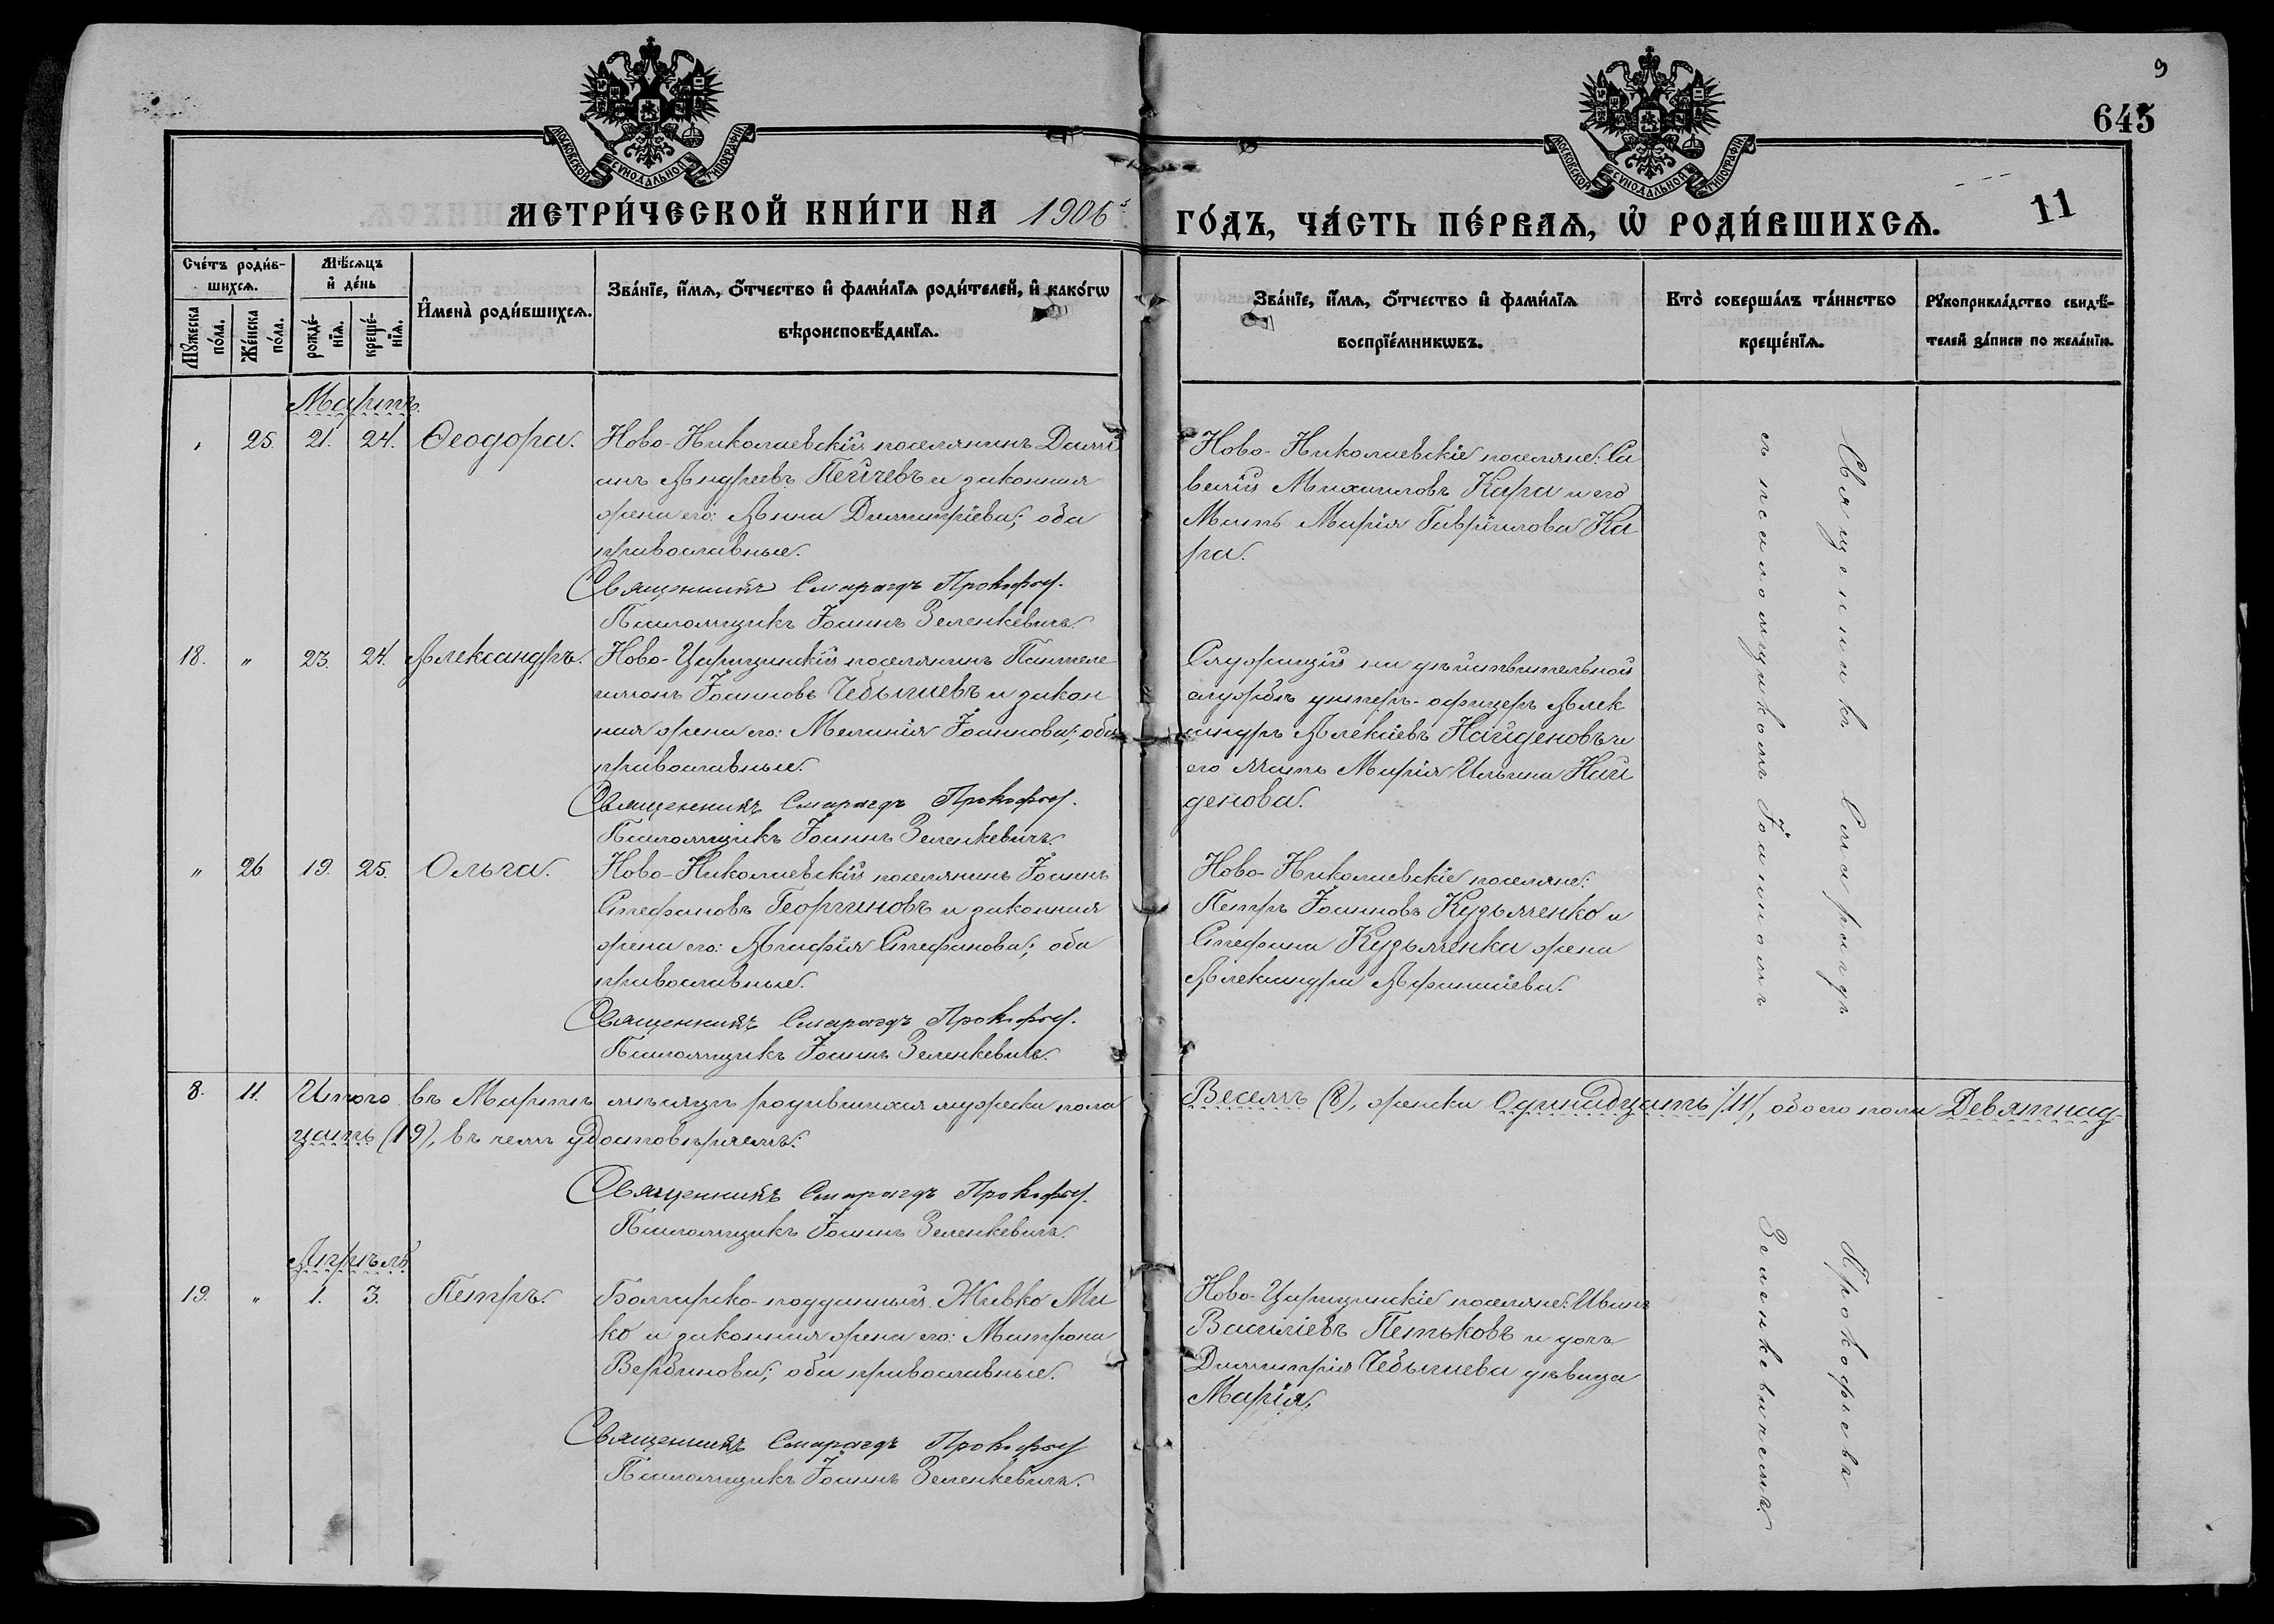 9
645
11
МОСКОВСКОЙ СѴНОДАЛЬНОЙ ТИПОГРАФІИ
МОСКОВСКОЙ СѴНОДАЛЬНОЙ ТИПОГРАФІИ
МЕТРИ́ЧЕСКОЙ КНИ́ГИ НА 1906 ГО́ДЪ, ЧА́СТЬ ПЕ́РВАѦ, Ѡ҆ РОДИ́ВШИХСѦ.
Сче́тъ роди́в-
шихсѧ.
Мѣ́сѧцъ
и҆ де́нь
Мꙋ́жеска
по́ла.
Же́нска
по́ла.
рожде́-
нїѧ.
креще́-
нїѧ.
И҆мена̀ роди́вшихсѧ.
Зва́нїе, и҆́мѧ, ѻ҆́тчество и҆ фами́лїѧ роди́телей, и҆ како́гѡ
вѣроисповѣ́данїѧ.
Зва́нїе, и҆́мѧ, ѻ҆́тчество и҆ фами́лїѧ
воспрїе́мникѡвъ.
Кто̀ соверша́лъ та́инство
креще́нїѧ.
Рꙋкоприкла́дство свидѣ́-
телей за́писи по жела́нїю.
Мартъ.
" 25. 21. 24. Ѳеодора.
Ново-Николаевскій поселянинъ Дамі
анъ Андреевъ Пейчевъ и законная
жена его: Анна Димитріева; оба
православные.
Священникъ Смарагдъ Прокофьев.
Псаломщикъ Іоаннъ Зеленкевичъ.
Ново-Николаевскіе поселяне: Са
велій Михаиловъ Кара и его
Мать Марія Гавріилова Ка
ра.
18. " 23. 24. Александръ.
Ново-Царицинскій поселянинъ Пантеле
имонъ Іоанновъ Чебышевъ и закон
ная жена его: Меланія Іоаннова; оба
православные.
Священникъ Смарагдъ Прокофьев.
Псаломщикъ Іоаннъ Зеленкевичъ.
Служащій на дѣйствительной
службѣ унтеръ-офицеръ Алек
сандръ Алексіевъ Найденовъ и
его мать Марія Ильина Най
денова.
" 26 19. 25. Ольга.
Ново-Николаевскій поселянинъ Іоаннъ
Стефановъ Георгиновъ и законная
жена его: Агафія Стефанова; оба
православные.
Священникъ Смарагдъ Прокофьев.
Псаломщикъ Іоаннъ Зеленкевичъ.
Ново-Николаевскіе поселяне:
Петръ Іоанновъ Кузьменко и
Стефана Кузьменка жена
Александра Афанасіева.
8. 11. Итого въ Мартѣ мѣсяцѣ родившихся мужеска пола Восемь (8), женска Одинадцать (11), обоего пола Девятнад-
цать (19), въ чемъ удостовѣряемъ:
Священникъ Смарагдъ Прокофьев.
Псаломщикъ Іоаннъ Зеленкевичъ.
Апрѣль
19. " 1. 3. Петръ.
Болгарско-подданный Живко Ми
ко и законная жена его: Матрона
Вербанова; оба православные.
Священникъ Смарагдъ Прокофьев
Псаломщикъ Іоаннъ Зеленкевичъ.
Ново-Царицинскіе поселяне: Иванъ
Василіевъ Петьковъ и дочь
Димитрія Чебышева дѣвица
Марія.
Священникъ Смарагдъ Прокофьевъ
съ псаломщикомъ Іоанномъ Зеленкевичемъ.